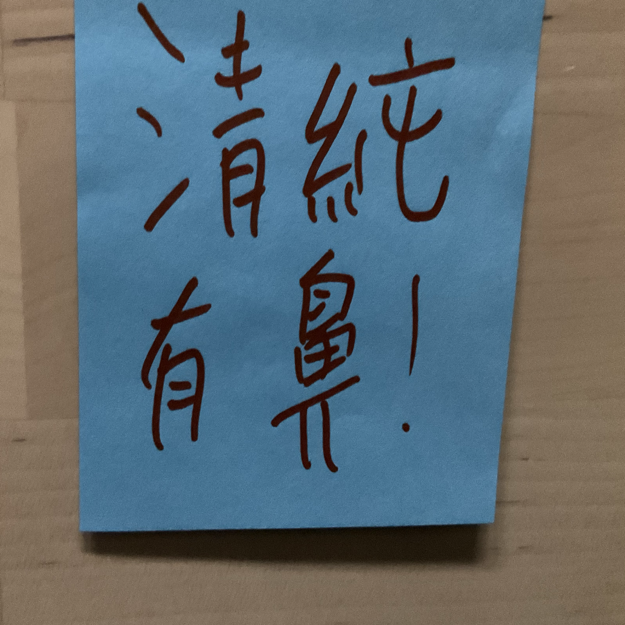 清純
有鼻!